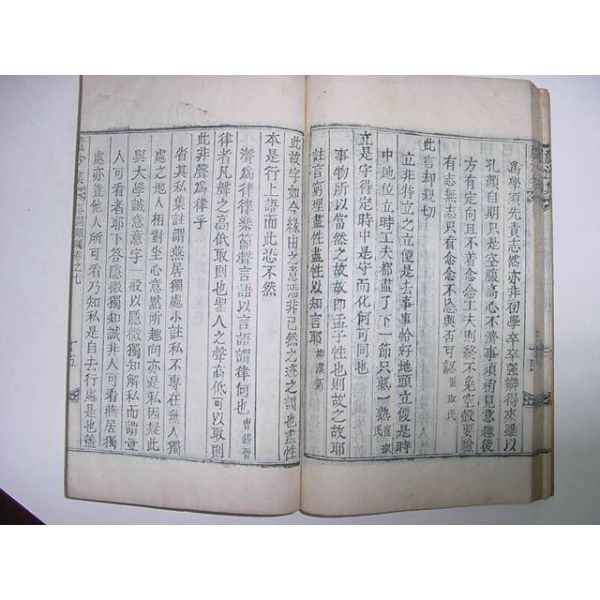 爲學須先責志然亦非初學卒卒強辨得來雖以
孔顏自期只是空腹高心不濟事須稍見意趣後
方有定向且不若着念念工夫則終不免空殼要驗
有志無志只看念念不忘與否可耳
此言却親切
立非特立之立便是去事事恰好地頭立便是時
中地位立時工夫都盡了下一節只熟一熟
立是守得定時中是守而化何可同也
事物所以當然之故故卽孟子性也則故之故耶
註言窮理盡性盡性以知言耶
此故字如今緣由之意恐非已然之迹之謂也盡性
本是行上語而此恐不然
聲爲律律樂節聲言語以言語謂律何也
律者凡聲之高低取則也聖人之聲高低可以取則
此非聲爲律乎
省其私集註謂燕居獨處小註私不專在無人獨
處之地人相對坐心意默所趨向亦是私因擬此
與大學誠意意字一般以隱微獨知解私而謂章
人可看者耶下答隱微獨知誠非人可看燕居獨
處亦豈他人所可看乃知私是自去行處是也蓋
卷之七
十五